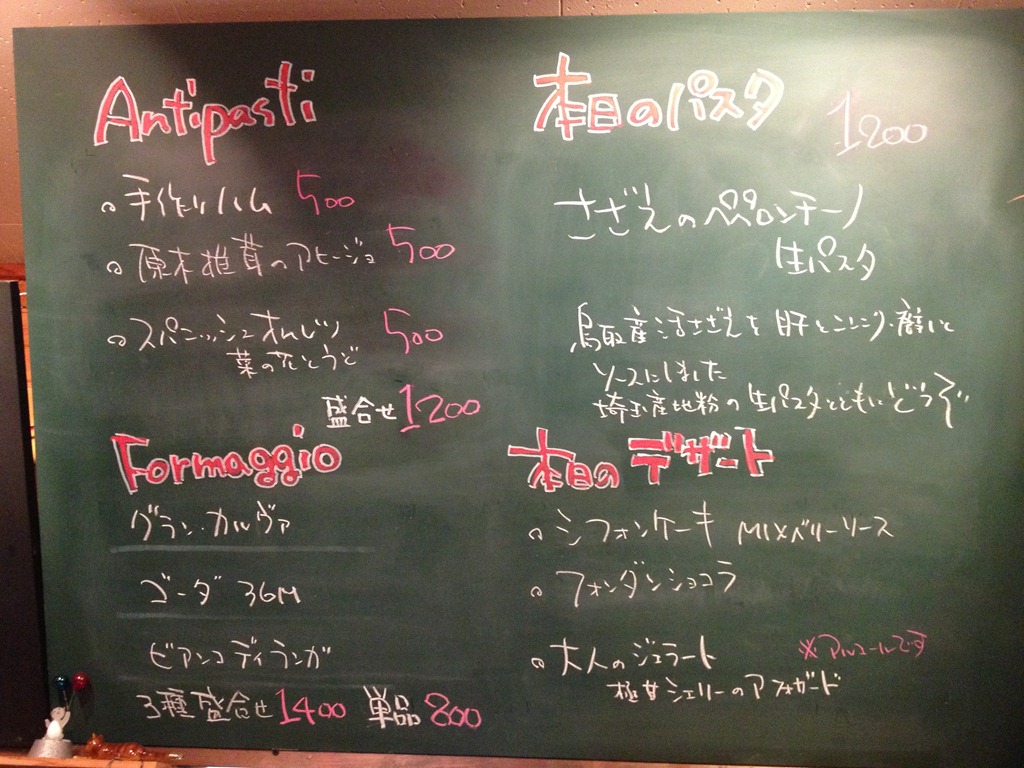 Antipasti
手作りハム 500
原木椎茸のアヒージョ 500
スパニッシュオムレツ 500
菜の花とうど
盛合せ 1200
Formaggio
グラン・カルヴァ
ゴーダ 36M
ビアンコディランガ
3種盛合せ 1400 単品 800
本日のパスタ 1200
さざえのペペロンチーノ
生パスタ
鳥取産活さざえを肝とニンニク・唐辛子と
ソースにしました
埼玉産地粉の生パスタとともにどうぞ
本日のデザート
シフォンケーキ MIXベリーソース
フォンダンショコラ
大人のジェラート ※アルコールです
極甘シェリーのアフォガード